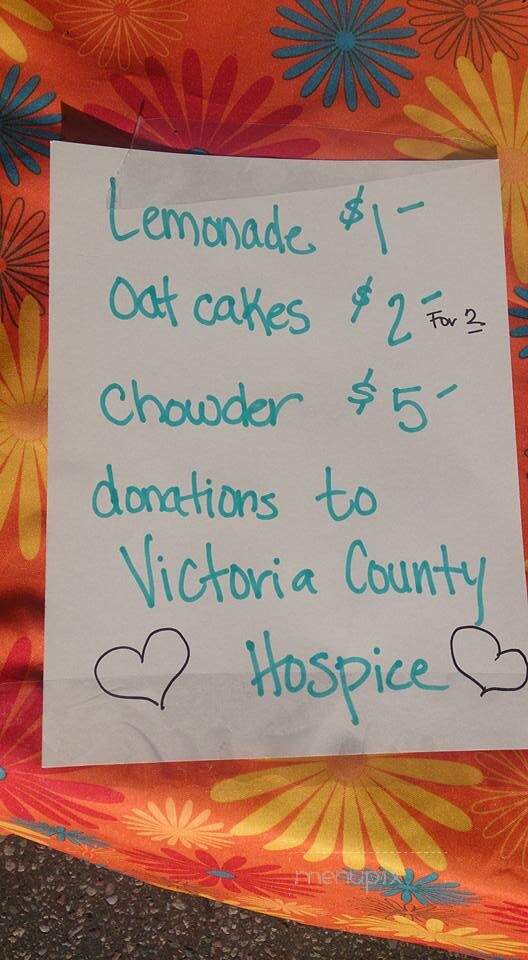 Lemonade $1-
Oat cakes $2- For 2
Chowder $5-
donations to
Victoria County
Hospice
menupix